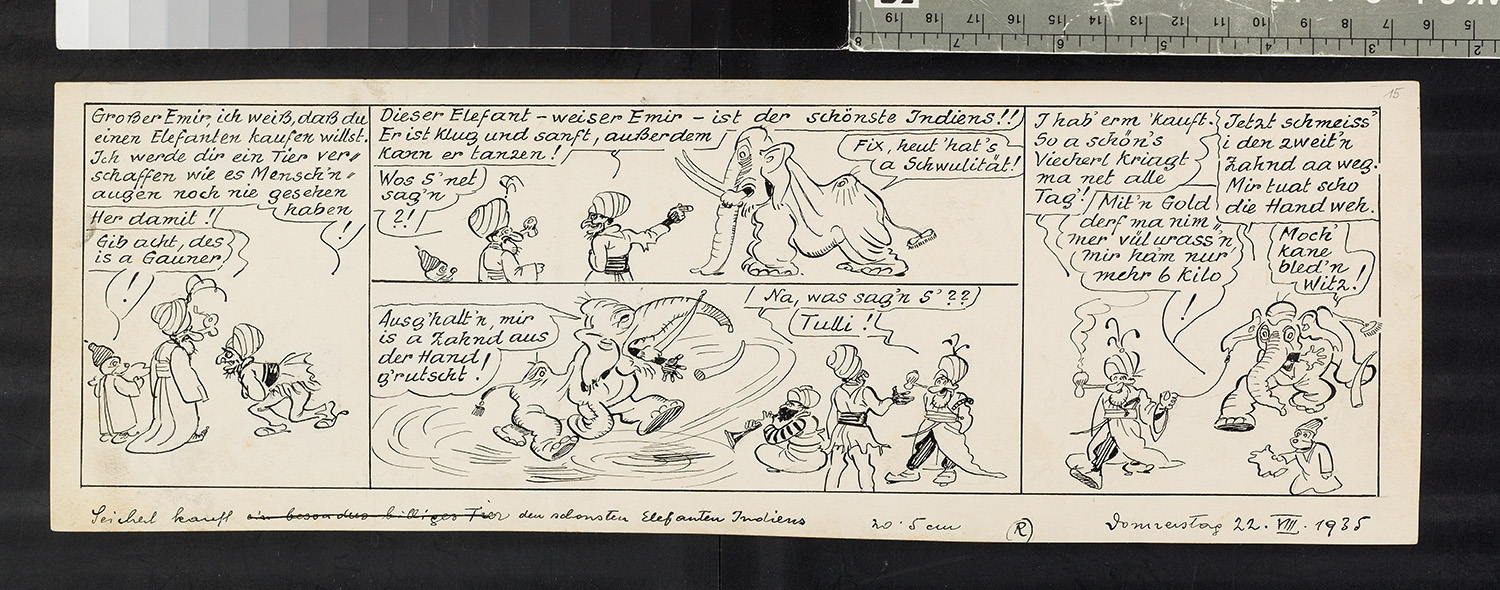 15
Großer Emir, ich weiß, daß du
einen Elefanten kaufen willst.
Ich werde dir ein Tier ver„
schaffen wie es Mensch'n„
augen noch nie gesehen
haben
!
Her damit!
Gib acht, des
is a Gauner
!
Dieser Elefant – weiser Emir – ist der schönste Indiens!!
Er ist klug und sanft, außerdem
kann er tanzen!
Wos S' net
sag'n
?!
Fix, heut 'hat's
a Schwulität!
Ausg'halt'n, mir
is a Zahnd aus
der Hand
g'rutscht!
Na, was sag'n S'??
Tulli!
I hab' erm 'kauft.
So a schön's
Viecherl kriagt
ma net alle
Tag'!
Mit'n Gold
derf ma nim„
mer vül urass'n
mir ham nur
mehr 6 Kilo
!
Jetzt schmeiss'
i den zweit'n
Zahnd aa weg.
Mir tuat scho
die Hand weh.
Moch'
kane
bled'n
Witz!
Seicherl kauft ein besonders billiges Tier den schönsten Elefanten Indiens
20·5 cm
R
Donnerstag 22. VIII. 1935
19 18 17 16 15 14 13 12 11 10 9 8 7 6 5
8 7 6 5 4 3 2